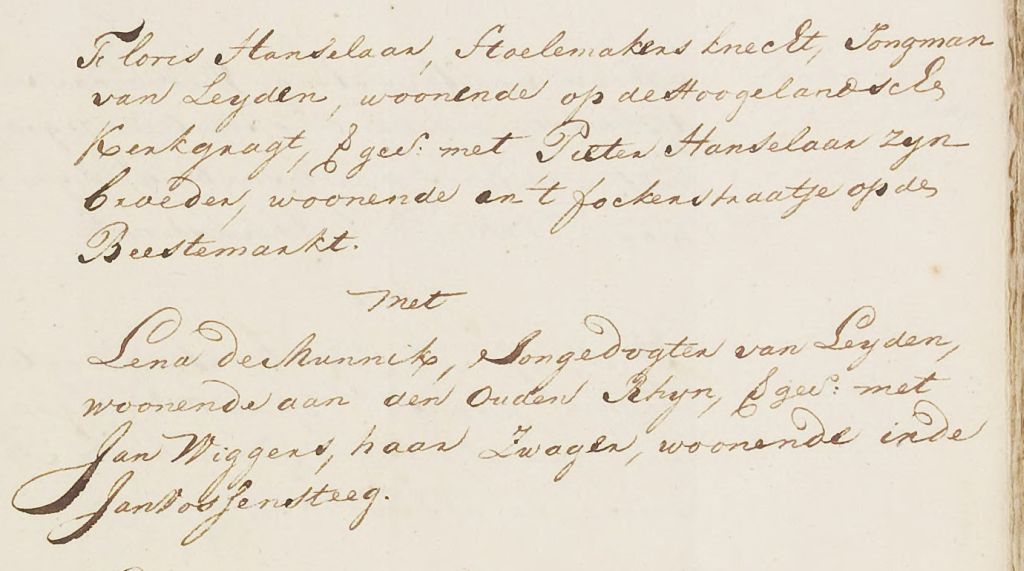 Floris Hanselaar, Stoelemakers knecht, Jongman
van Leyden, woonende op de Hoogelandsche
Kerkgragt, Vgesz: met Pieter Hanselaar zyn
broeder, woonende in't fockerstraatje op de
Beestemarkt.
met
Lena de Munnik, Jongedogter van Leyden,
woonende aan den Ouden Rhyn, Vgesz: met
Jan Wiggers, haar Zwager, woonende in de
Jan Vossensteeg.